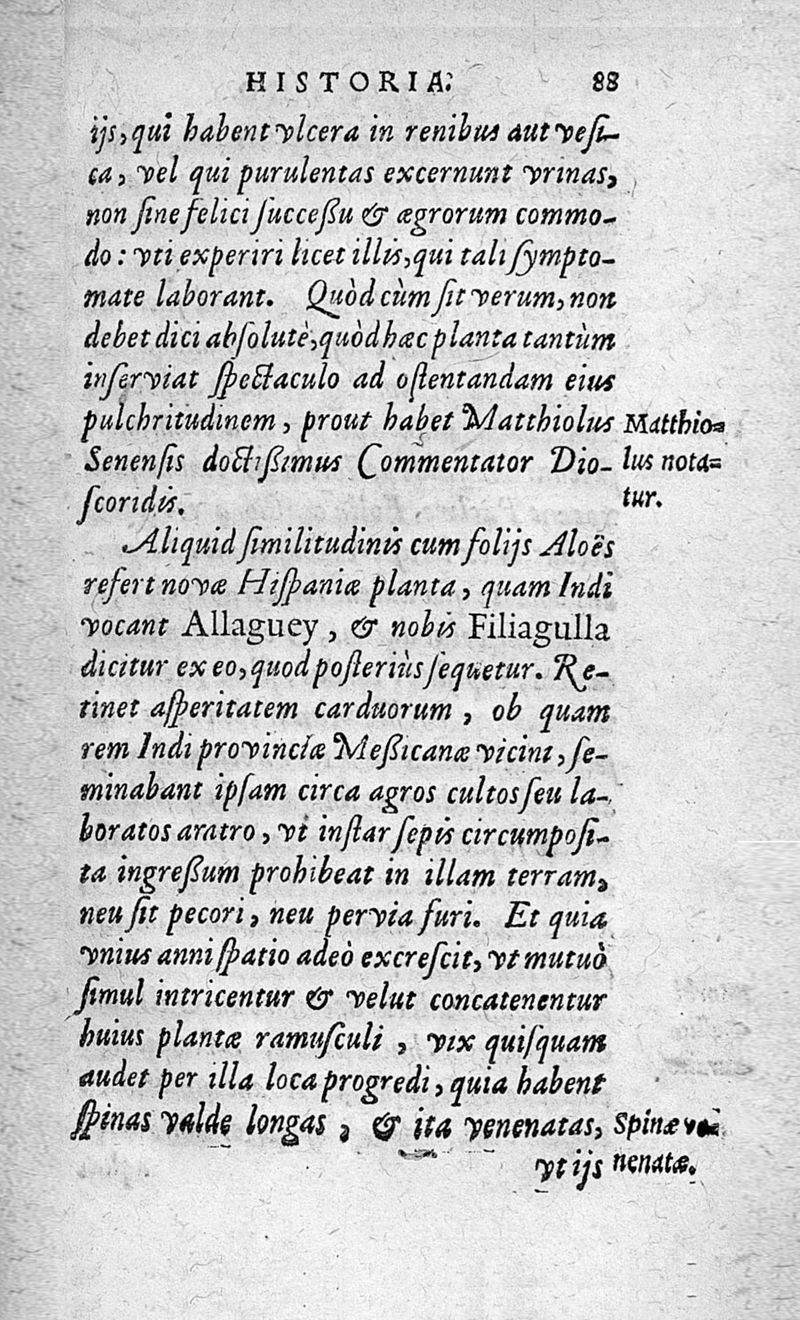 HISTORIÆ. 88
ijs, qui habent vlcera in renibus aut vesi-
ca, vel qui purulentas excernunt vrinas,
non sine felici succeßu & ægrorum commo-
do: vti experiri licet illis, qui tali sympto-
mate laborant. Quòd cùm sit verum, non
debet dici absolutè, quòd hæc planta tantùm
inserviat spectaculo ad ostentandam eius
pulchritudinem, prout habet Matthiolus
Senensis doctißimus Commentator Dio-
scoridis.
Matthio=
lus nota=
tur.
Aliquid similitudinis cum folijs Aloës
refert novæ Hispaniæ planta, quam Indi
vocant Allaguey, & nobis Filiagulla
dicitur ex eo, quod posteriùs sequetur. Re-
tinet asperitatem carduorum, ob quam
rem Indi provinciæ Meßicanæ vicini, se-
minabant ipsam circa agros cultos seu la-
boratos aratro, vt instar sepis circumposi-
ta ingreßum prohibeat in illam terram,
neu sit pecori, neu pervia furi. Et quia
vnius anni spatio adeò excrescit, vt mutuò
simul intricentur & velut concatenentur
huius plantæ ramusculi, vix quisquam
audet per illa loca progredi, quia habent
spinas valde longas, & ita venenatas,
vt ijs
Spinæ ve=
nenatæ.